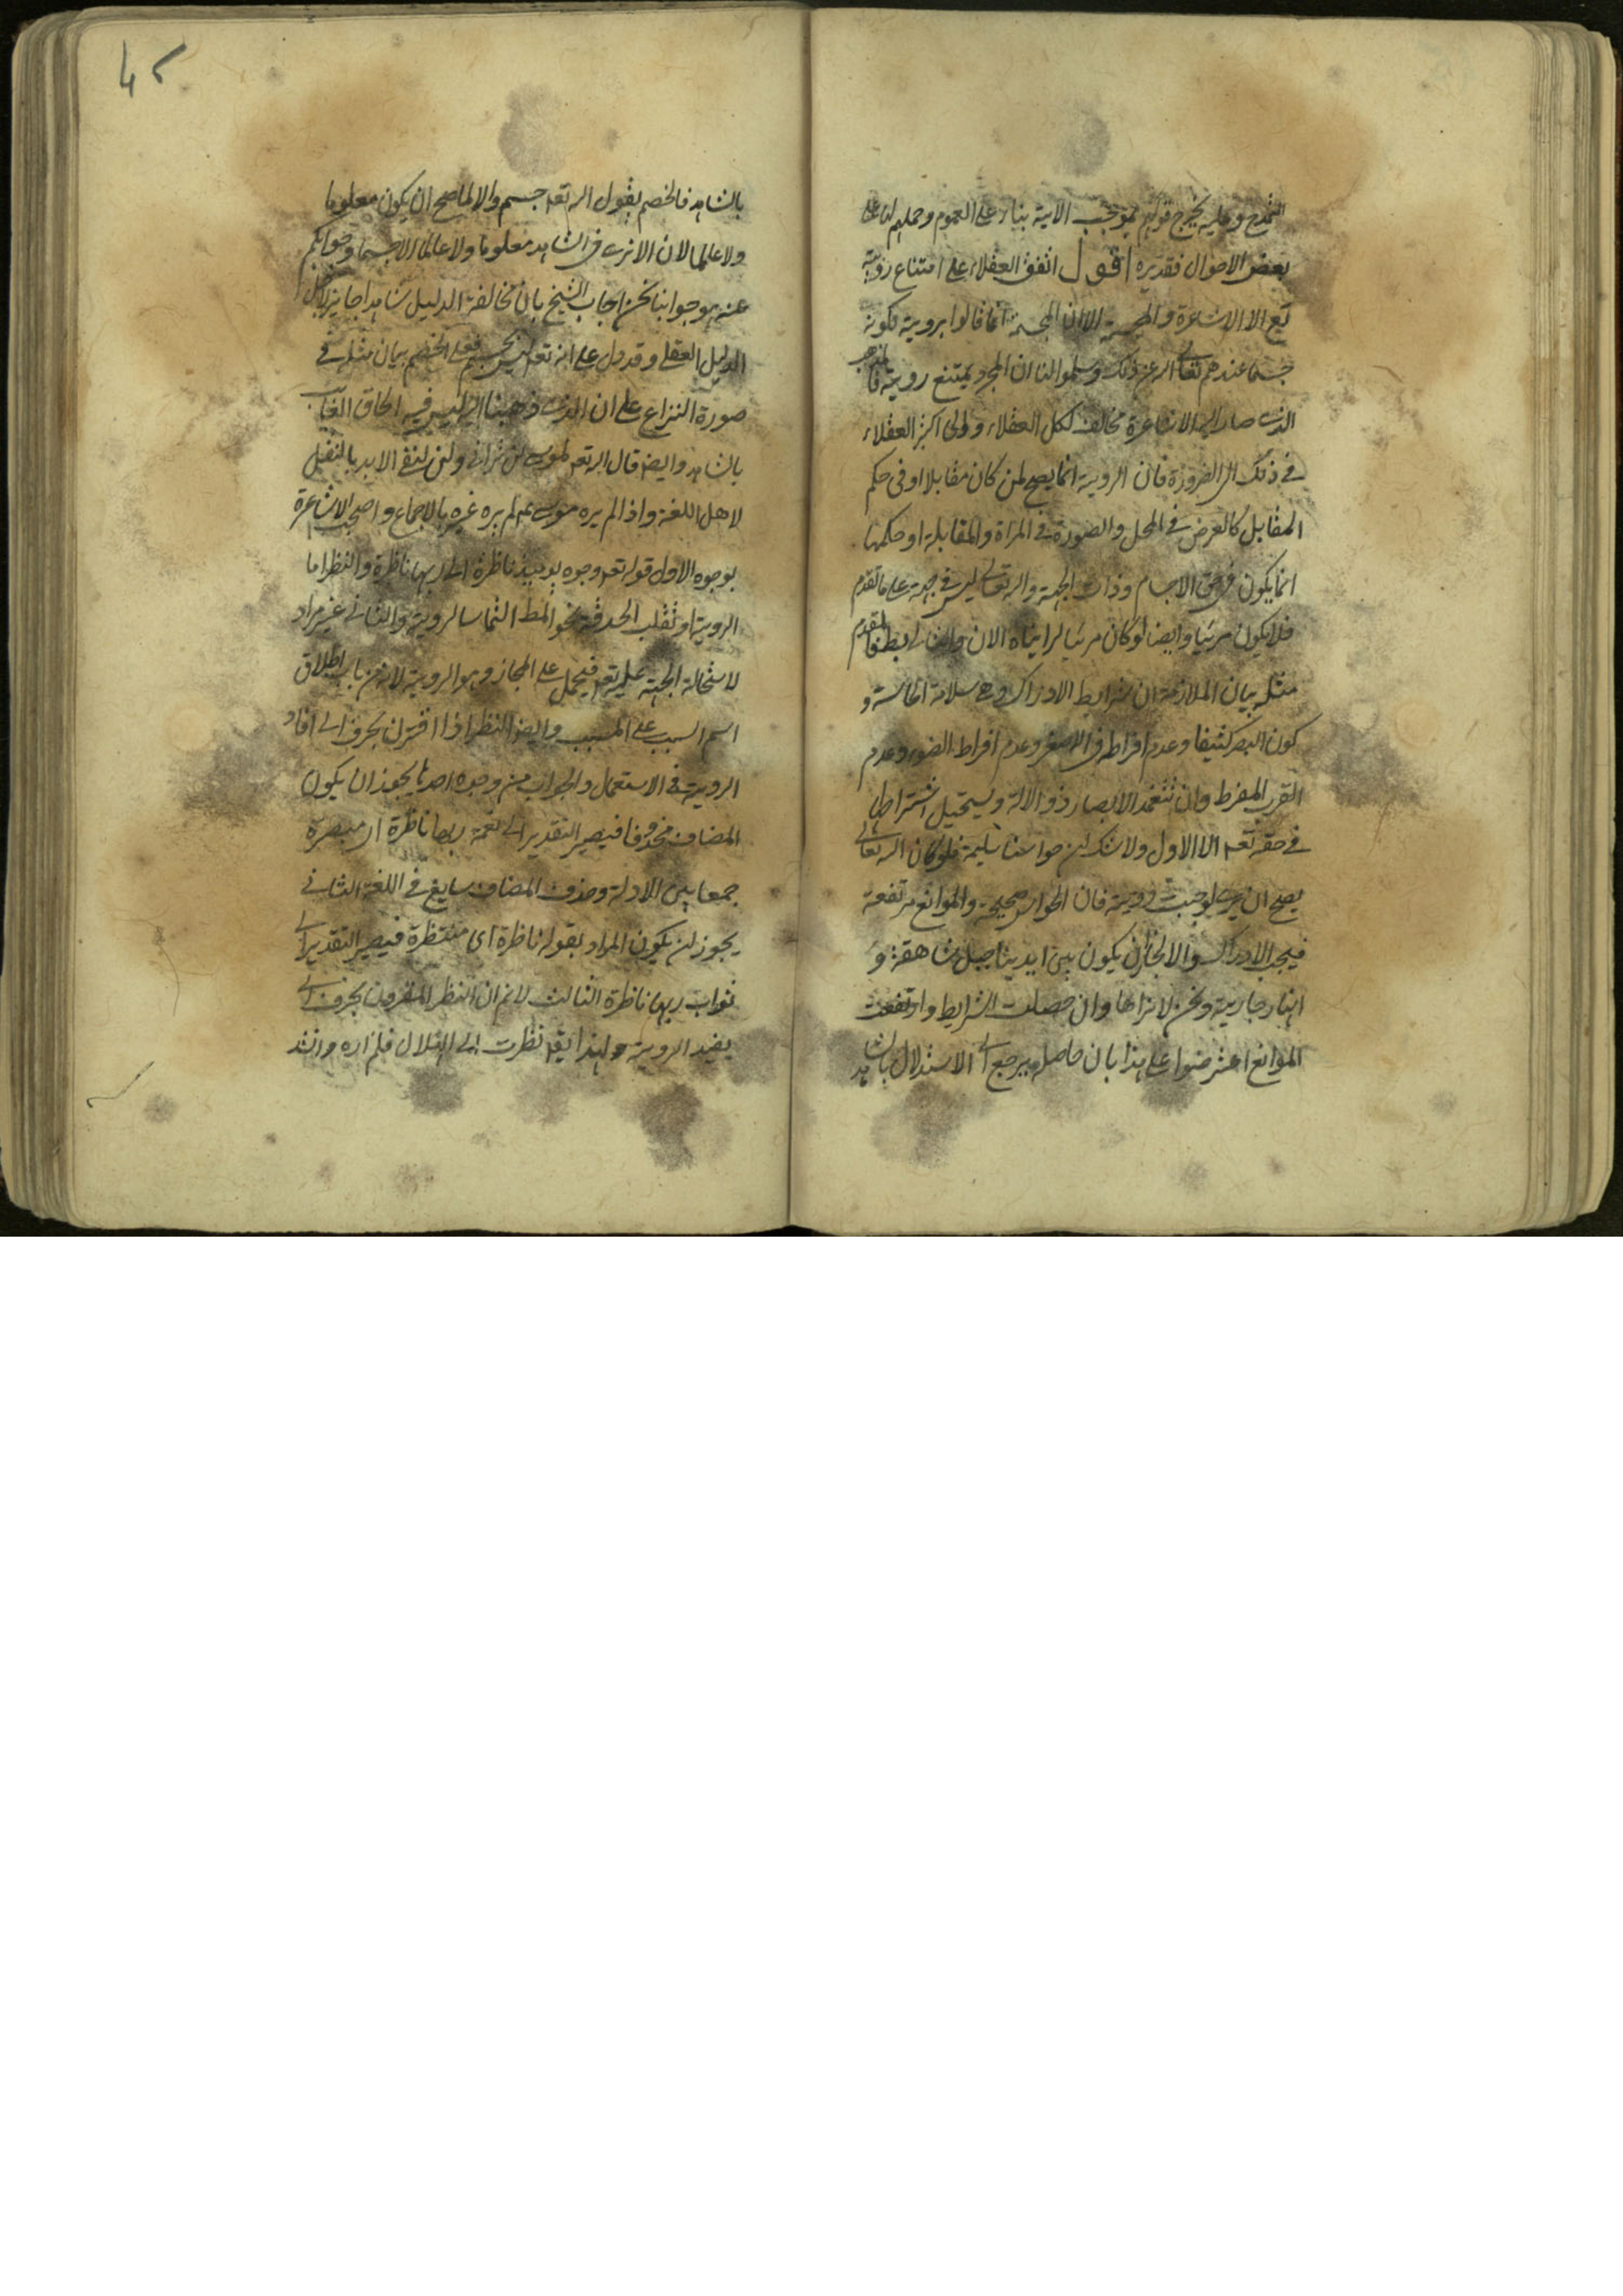 التمدح وعليه يخرج قولهم بموجب الاية بناء على العموم وحملهم لها على
بعض الاحوال فقديره اقول اتفق العقلاء على امتناع رؤيته
تع الا الاشاعرة والمجسمة الا ان المجسمة انما قالوا برويته لكونه
جسما عندهم تعالى الله عن ذلك وسلموا لنا ان المجرد يمتنع رويته فالمذهب
الذى صار اليه الاشاعرة مخالف لكل العقلاء اكثر العقلاء
فى ذلك الى الضرورة فان الروية انما يصح لمن كان مقابلا او فى حكم
المقابل كالعرض فى المحل والصورة فى المراة والمقابلة او حكمها
انما يكون فى حق الاجسام وذات الجهة والله تعالى ليس فى جهة على ما تقدم
فلا يكون مرئيا وايضا لو كان مرئيا لرايناه الان والتالى بط فالمقدم
مثله بيان الملازمة ان شرايط الادراك وهى سلامة الحاسة و
كون المبصر كثيفا وعدم افراطه فى الصغر وعدم افراط الضوء وعدم
القرب المفرط وان يتعمد الابصار ذو الالة ويستحيل اشتراطها
فى حقه تعه الا الاول ولا شك ان حواسنا سليمة فلو كان الله تعالى
يصح ان يرى لوجبت رويته فان الحواس صحيحة والموانع مرتفعة
فيجب الادراك والا لجاز ان يكون بين ايدينا جبل شاهقة و
انهار جارية ونحن لا نراها وان حصلت الشرايط وارتفعت
الموانع اعترضوا على هذا بان حاصله يرجع الى الاستدلال بالشاهد
بالشاهد فالخصم يقول الله تعه جسم والا لما صح ان يكون معلوما
ولا عالما لان لا نرى فى الشاهد معلوما ولا عالما الا جسما وجوابكم
عنه هو جوابنا نحن اجاب الشيخ بان مخالفة الدليل شاهدا جايز لاجل
الدليل العقلى وقد دل على انه تعه ليس بجسم فعلى الخصم بيان مثله فى
صورة النزاع على ان الذى ذهبنا اليه ليس فيه الحاق الغايب
بالشاهد وايضا قال الله تعه لموسى لن ترانى ولن لنفى الابد بالنقل
لاهل اللغة واذا لم يره موسى عم لم يره غيره بالاجماع واحتجت الاشاعرة
بوجوه الاول قوله تعه وجوه يومئيذ ناظرة الى ربها ناظرة والنظر اما
الروية او تقلب الحدقة نحو المط التماسا لرويته والثانى غير مراد
لاستحالة الجهة عليه تعه فيحمل على المجاز وهو الروية لانه من باب اطلاق
اسم السبب على المسبب وايضا النظر اذا اقترن بحرف الى افاد
الروية فى الاستعمال والجواب من وجوه احدها يجوز ان يكون
المضاف محذوفا فيصير التقدير الى نعمة ربها ناظرة اى مبصرة
جمعا بين الادلة وحذف المضاف سايغ فى اللغة الثانى
يجوز ان يكون المراد بقوله ناظرة اى منتظرة فيصير التقدير الى
ثواب ربها ناظرة الثالث لا نم ان النظر المقرون بحرف الى
يفيد الروية ولهذا يقه نظرت الى الهلال فلم اره وانشد